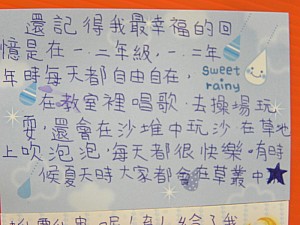 還記得我最幸福的回
憶是在一.二年級,一.二年
年時每天都自由自在,
sweet
rainy
在教室裡唱歌.去操場玩
耍,還會在沙堆中玩沙.在草地
上吹泡泡,每天都很快樂。有時
候夏天時大家都會在草叢中